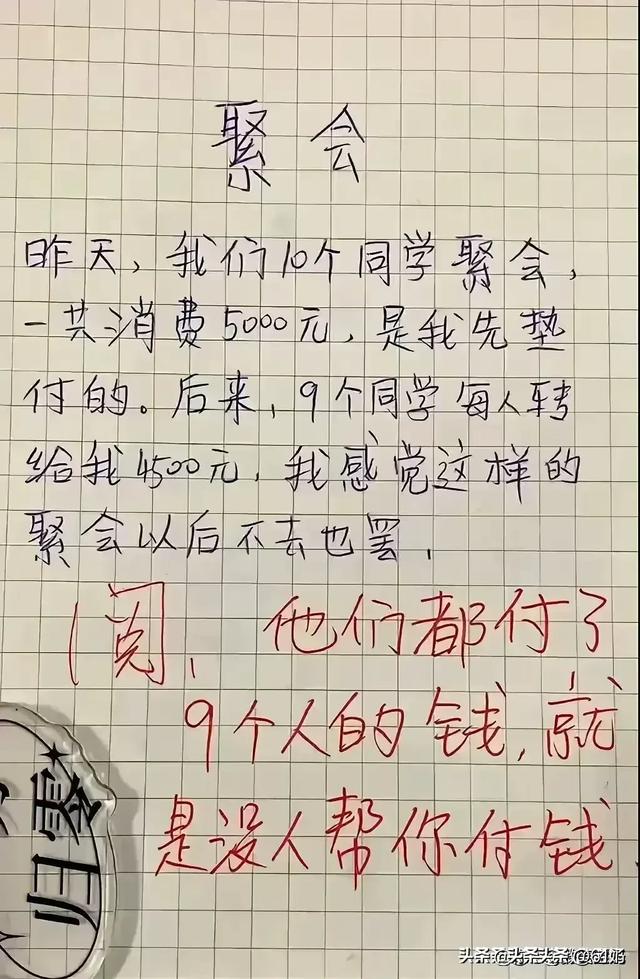 聚会
昨天，我们10个同学聚会，
一共消费5000元，是我先垫
付的。后来，9个同学每人转
给我4500元，我感觉这样的
聚会以后不去也罢.
阅、他们都付了
9个人的钱，就
是没人帮你付钱.
归零